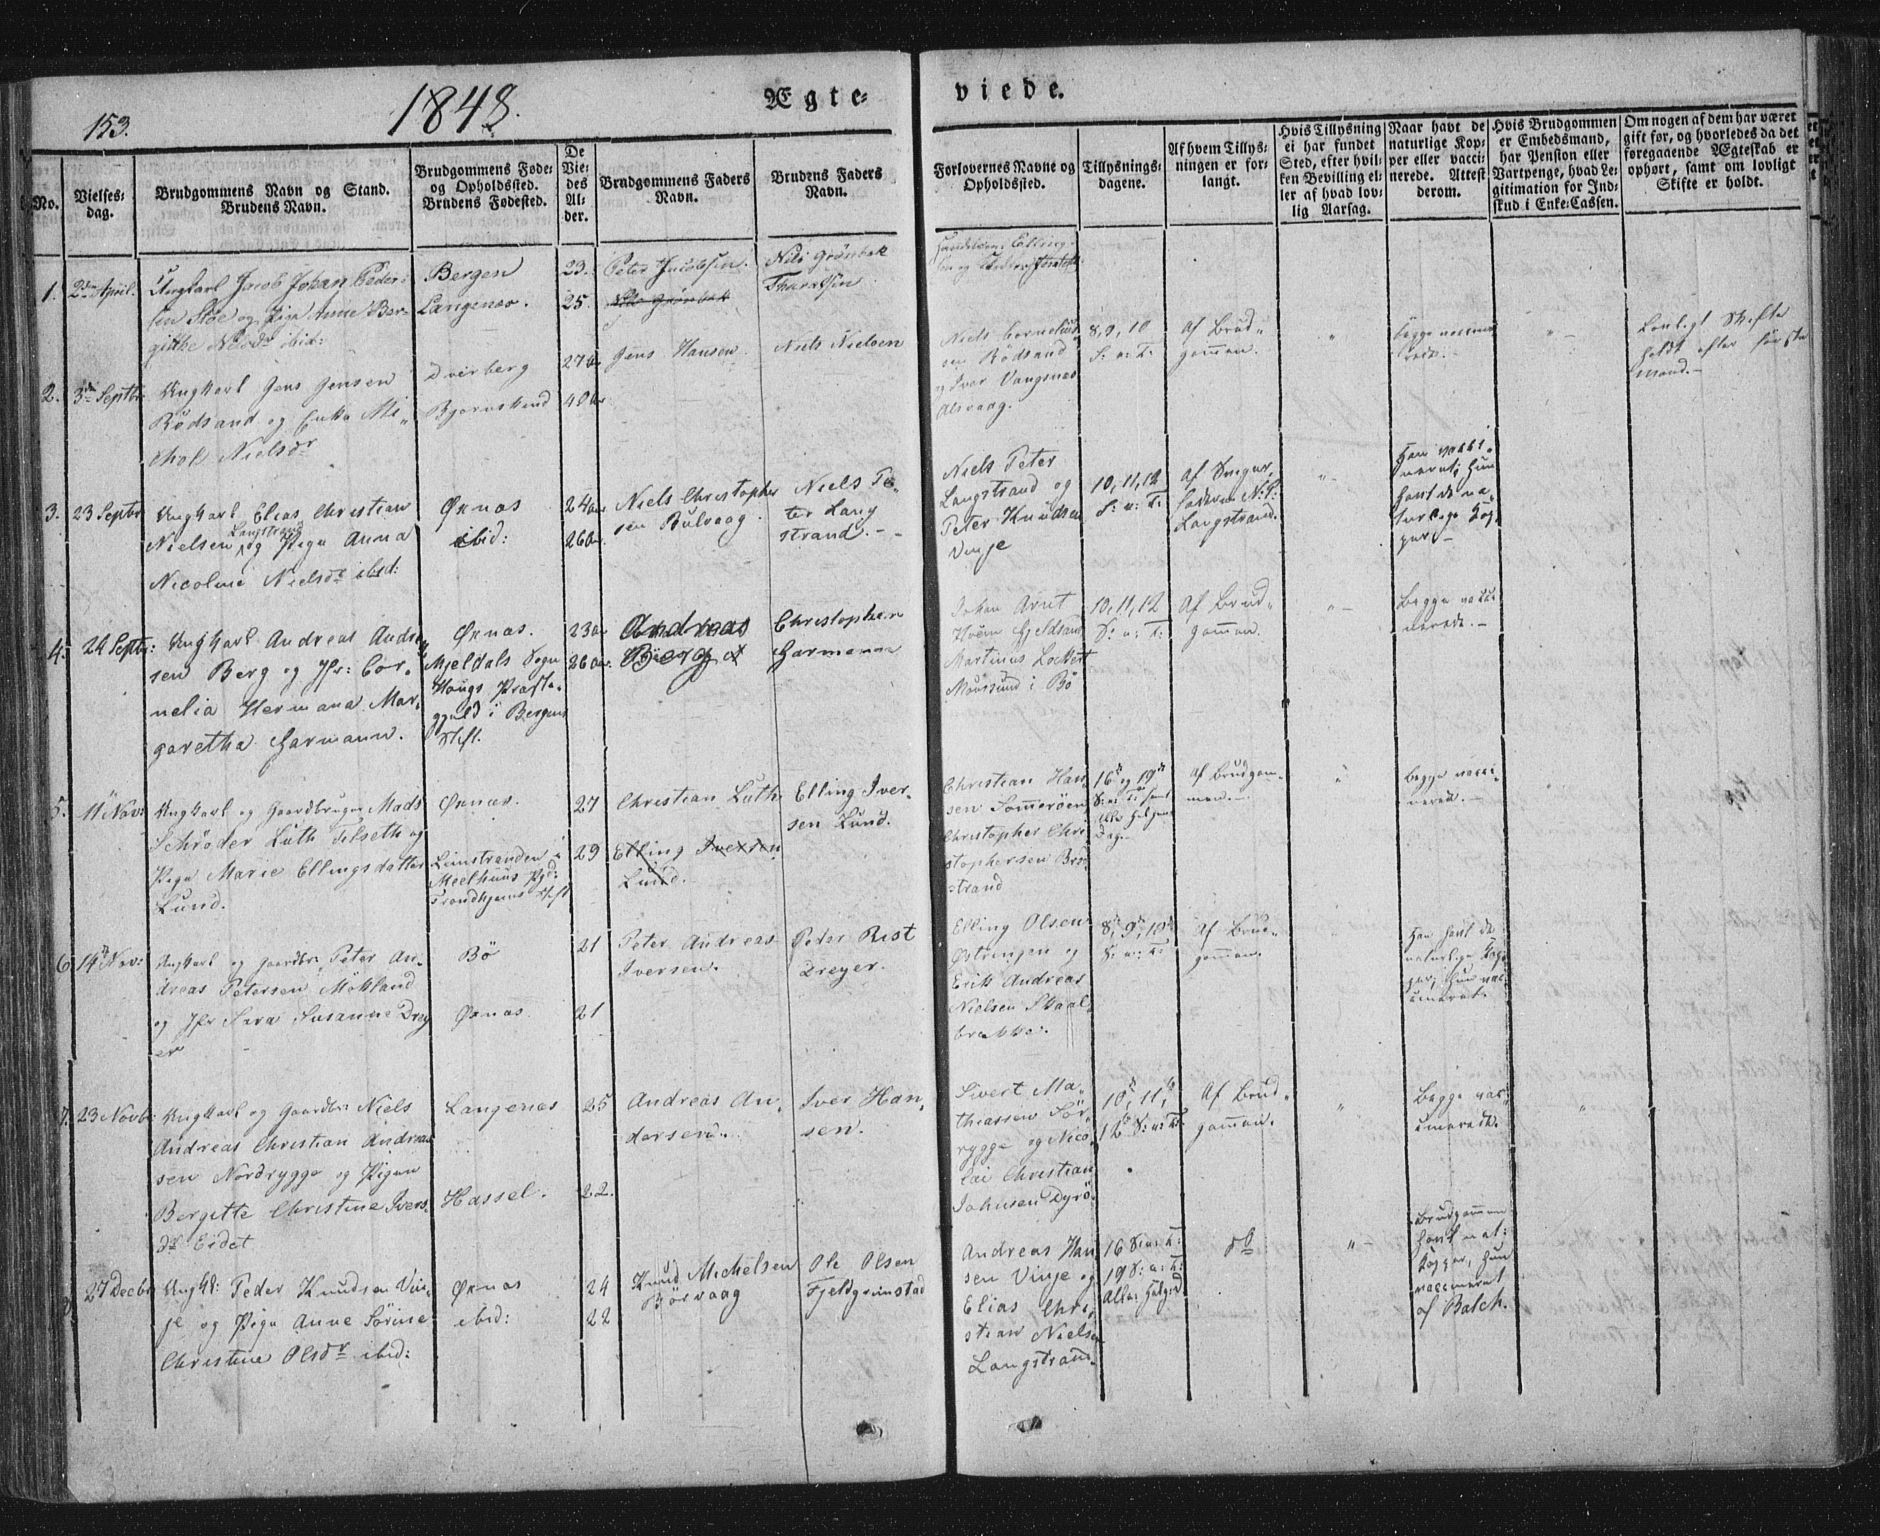 153.
1848.
Ægte-
viede.
No.
Vielses-
dag.
Brudgommens Navn og Stand.
Brudens Navn.
Brudgommens Føde-
og Opholdssted.
Brudens Fødested.
De
Vie-
des
Al-
der.
Brudgommens Faders
Navn.
Brudens Faders
Navn.
Forlovernes Navne og
Opholdssted.
Tillysnings-
dagene.
Af hvem Tillys-
ningen er for-
langt.
Hvis Tillysning
ei har fundet
Sted, efter hvil-
ken Bevilling el-
ler af hvad lov-
lig Aarsag.
Naar havt de
naturlige Kop-
per eller vacci-
nerede. Attest
derom.
Hvis Brudgommen
er Embedsmand,
har Pension eller
Vartpenge, hvad Le-
gitimation for Ind-
skud i Enke-Cassen.
Om nogen af dem har været
gift før, og hvorledes da det
foregaaende Ægteskab er
ophørt, samt om lovligt
Skifte er holdt.
1.
2den April.
Ungkarl Jacob Johan Peder-
sen Støe og Pige Anne Ber-
githe ibid:
Bergen
Langenes.
23.
25.
Peter Jacobsen.
Nils Grønbek
Nils Grønbek
2.
3die Septbr
Ungkarl Jens Jensen
Rödsand og Enke
Nielsdr
Dverberg
Bjørnskind
27 Aar
40 Aar
Jens Hansen
Niels Nielsen
Niels Cornelius-
sen Rödsand
og Iver Vangsnes
Alsvaag.
8, 9, 10
S: a: T:
Af Brud-
gommen.
Begge vacci-
nerede.
Lovligt Skifte
holdt efter første
Mand.
3.
23 Septbr
Ungkarl Elias Christian
Nielsen Langstrand og Pige Anna
Nicoline Nielsdr ibid:
Øxnæs
ibid:
24 Aar
26 Aar
Niels Christopher
sen Bulvaag.
Niels Pe-
ter Lang
strand.
Niels Peter
Langstrand og
Peter Knudsen
Vinje
10, 11, 12
S: a: T:
Af Svigers-
faderen N: P:
Langstrand.
Han vacci-
neret; Hun
havt de na-
turlige Kop-
per.
4.
24 Septbr:
Ungkarl Andreas Andre-
sen Berg og Jfr: Cor-
nelia Hermana Mar-
garetha Garmann.
Øxnæs.
Mjeldals Sogn
Hougs Præste-
gjeld i Bergens
Stift.
23 Aar
26 Aar
Andreas
Berg
Christopher
Garmann
Johan Arnt
Hveem Gjeldsund
Martinus Lockert
i Bø
10, 11, 12
S: a: T:
Af Brud-
gommen.
Begge vacci-
nerede.
5.
11te Nov:
Ungkarl og Gaardbruger Mads
Schrøder Luth Tilseth og
Pige Marie Ellingsdatter
Lund.
Øxnæs.
Leinstranden i
Meelhuus Pgd:
Trondhjems Stift
27
29
Christian Luth
Elling Iversen
Lund.
Elling Iver-
sen Lund.
Christian Han-
sen Sommerøen
Christopher Chri-
stophersen
strand
16de og 19de
S: a: T: samt
Alle Helgens
Dag.
Af Brudgom-
men.
Begge vacci-
nerede.
6
14de Nov:
Ungkarl og Gaardbr: Peter An-
dreas Petersen Mökland
og Jfr Sara Susanne Drey
er
Bö
Øxnæs.
21
21
Peter Andreas
Iversen.
Peder Rist
Dreyer.
Elling Olsen
Östringen og
Erik Andreas
Nielsen Skaal
brekke.
8de, 9de, 10de
S: a: T:
Af Brud-
gommen.
Han havt de
naturlige Kop-
per, Hun vac-
cineret.
7.
23 Novbr
Ungkarl og Gaardbr: Niels
Andreas Christian Andrea-
sen Nordrygge og Pigen
Bergitte Christine Ivers-
dr Eidet
Langenæs
Hassel.
25
22.
Andreas An-
dersen.
Iver Han-
sen.
Sivert Ma-
thiassen Sör-
rygge og Nico-
lai Christian
Johnsen Dyrö.
10de, 11te,
12te S: a: T:
Af Brud-
gommen.
Begge vac-
cinerede.
8
27 Decbr
Ungk: Peder Knudsen Vin-
je og Pige Anne Sörine
Christine Olsdr ibid:
Øxnæs
ibid:
24
22
Knud Michelsen
Börvaag
Ole Olsen
Fjeldgrimstad
Andreas Han
sen Vinje og
Elias Chri-
stian Nielsen
Langstrand.
16 S: a: T:
19 S: a: T:
Alle Helgd
do
Brudgommen
havt nat:
Kopper, Hun
vaccineret
af Balch.